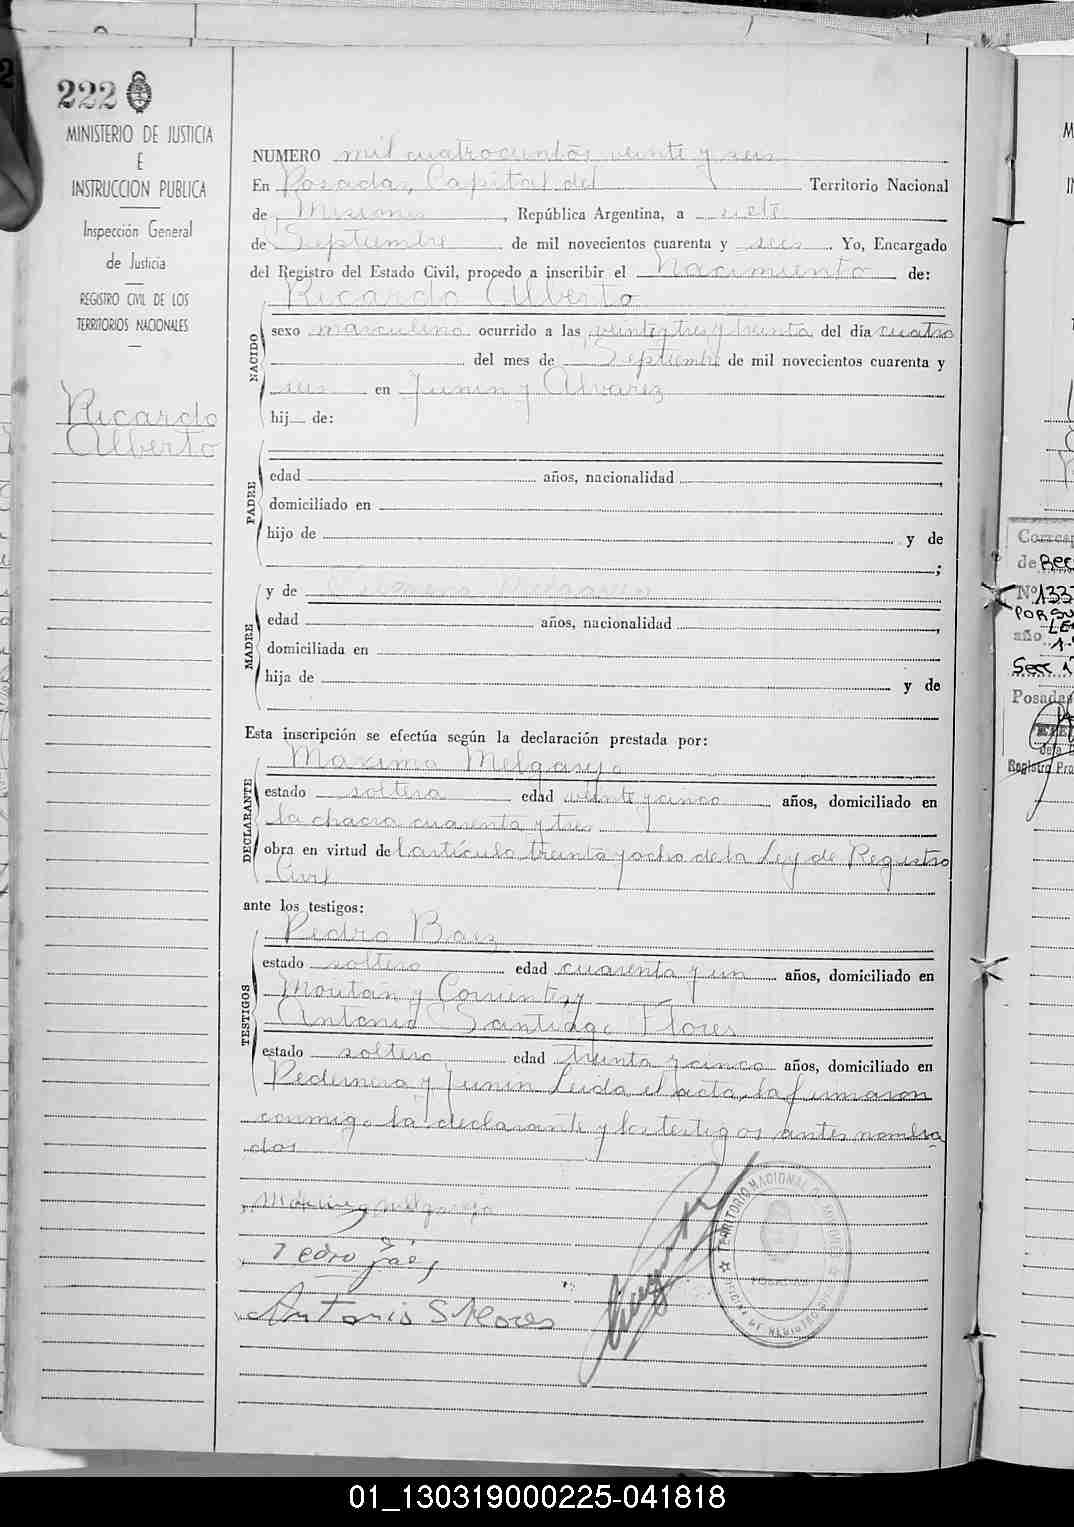 222
MINISTERIO DE JUSTICIA
E
INSTRUCCION PUBLICA
Inspección General
de Justicia
REGISTRO CIVIL DE LOS
TERRITORIOS NACIONALES
Ricardo
Alberto
NUMERO mil cuatrocientos veinte y seis
En Posadas, Capital del Territorio Nacional
de Misiones, República Argentina, a siete
de Septiembre de mil novecientos cuarenta y seis. Yo, Encargado
del Registro del Estado Civil, procedo a inscribir el Nacimiento de:
Ricardo Alberto
NACIDO
sexo masculino ocurrido a las veinte y tres y treinta del día cuatro
del mes de Septiembre de mil novecientos cuarenta y
seis en Junin y Alvarez
hij de:
PADRE
edad años, nacionalidad ,
domiciliado en
hijo de y de
;
MADRE
y de
edad años, nacionalidad ,
domiciliada en
hija de y de
Esta inscripción se efectúa según la declaración prestada por:
DECLARANTE
Maxima Melgarejo
estado soltera edad veinte y cinco años, domiciliado en
la chacra cuarenta y tres
obra en virtud del artículo treinta y ocho de la Ley de Registro
Civil
ante los testigos:
TESTIGOS
Pedro Baez
estado soltero edad cuarenta y un años, domiciliado en
y Corrientes y
Antonio Santiago Flores
estado soltero edad treinta y cinco años, domiciliado en
Pedernera y Junin Leida el acta, la firmaron
conmigo la declarante y los testigos antes nombra
dos
Maxima Melgarejo
Pedro
Antonio S Flores
TERRITORIO NACIONAL DE MISIONES
POSADAS
Corresp
de Rec
Nº 133
POR SU
LE
año
Secc
Posadas
Registro Pro
01_130319000225-041818